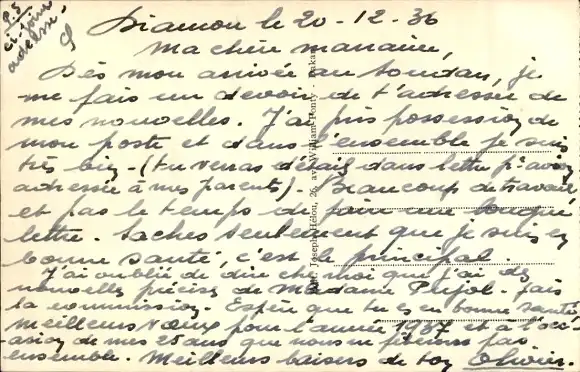 P.S
ci-joint
adresse.
Diamou le 20-12-36
Ma chère marraine,
Dès mon arrivée au Soudan, je
me fais un devoir de t'adresser de
mes nouvelles. J'ai pris possession de
mon poste et dans l'ensemble je suis
très bien - (tu verras détails dans lettre pr avion
adressée à mes parents). Beaucoup de travail
et pas le temps de faire une longue
lettre. Saches seulement que je suis en
bonne santé, c'est le principal.
J'ai oublié de dire chez moi que j'ai de
nouvelles précises de Madame Pujol. fais
la commission. Espère que tu es en bonne santé
Meilleurs vœux pour l'année 1937 et à l'occ-
asion de mes 25 ans que nous ne fêterons pas
ensemble. Meilleurs baisers de ton Olivier.
Joseph Hélou, 26, av. William Ponty - Dakar